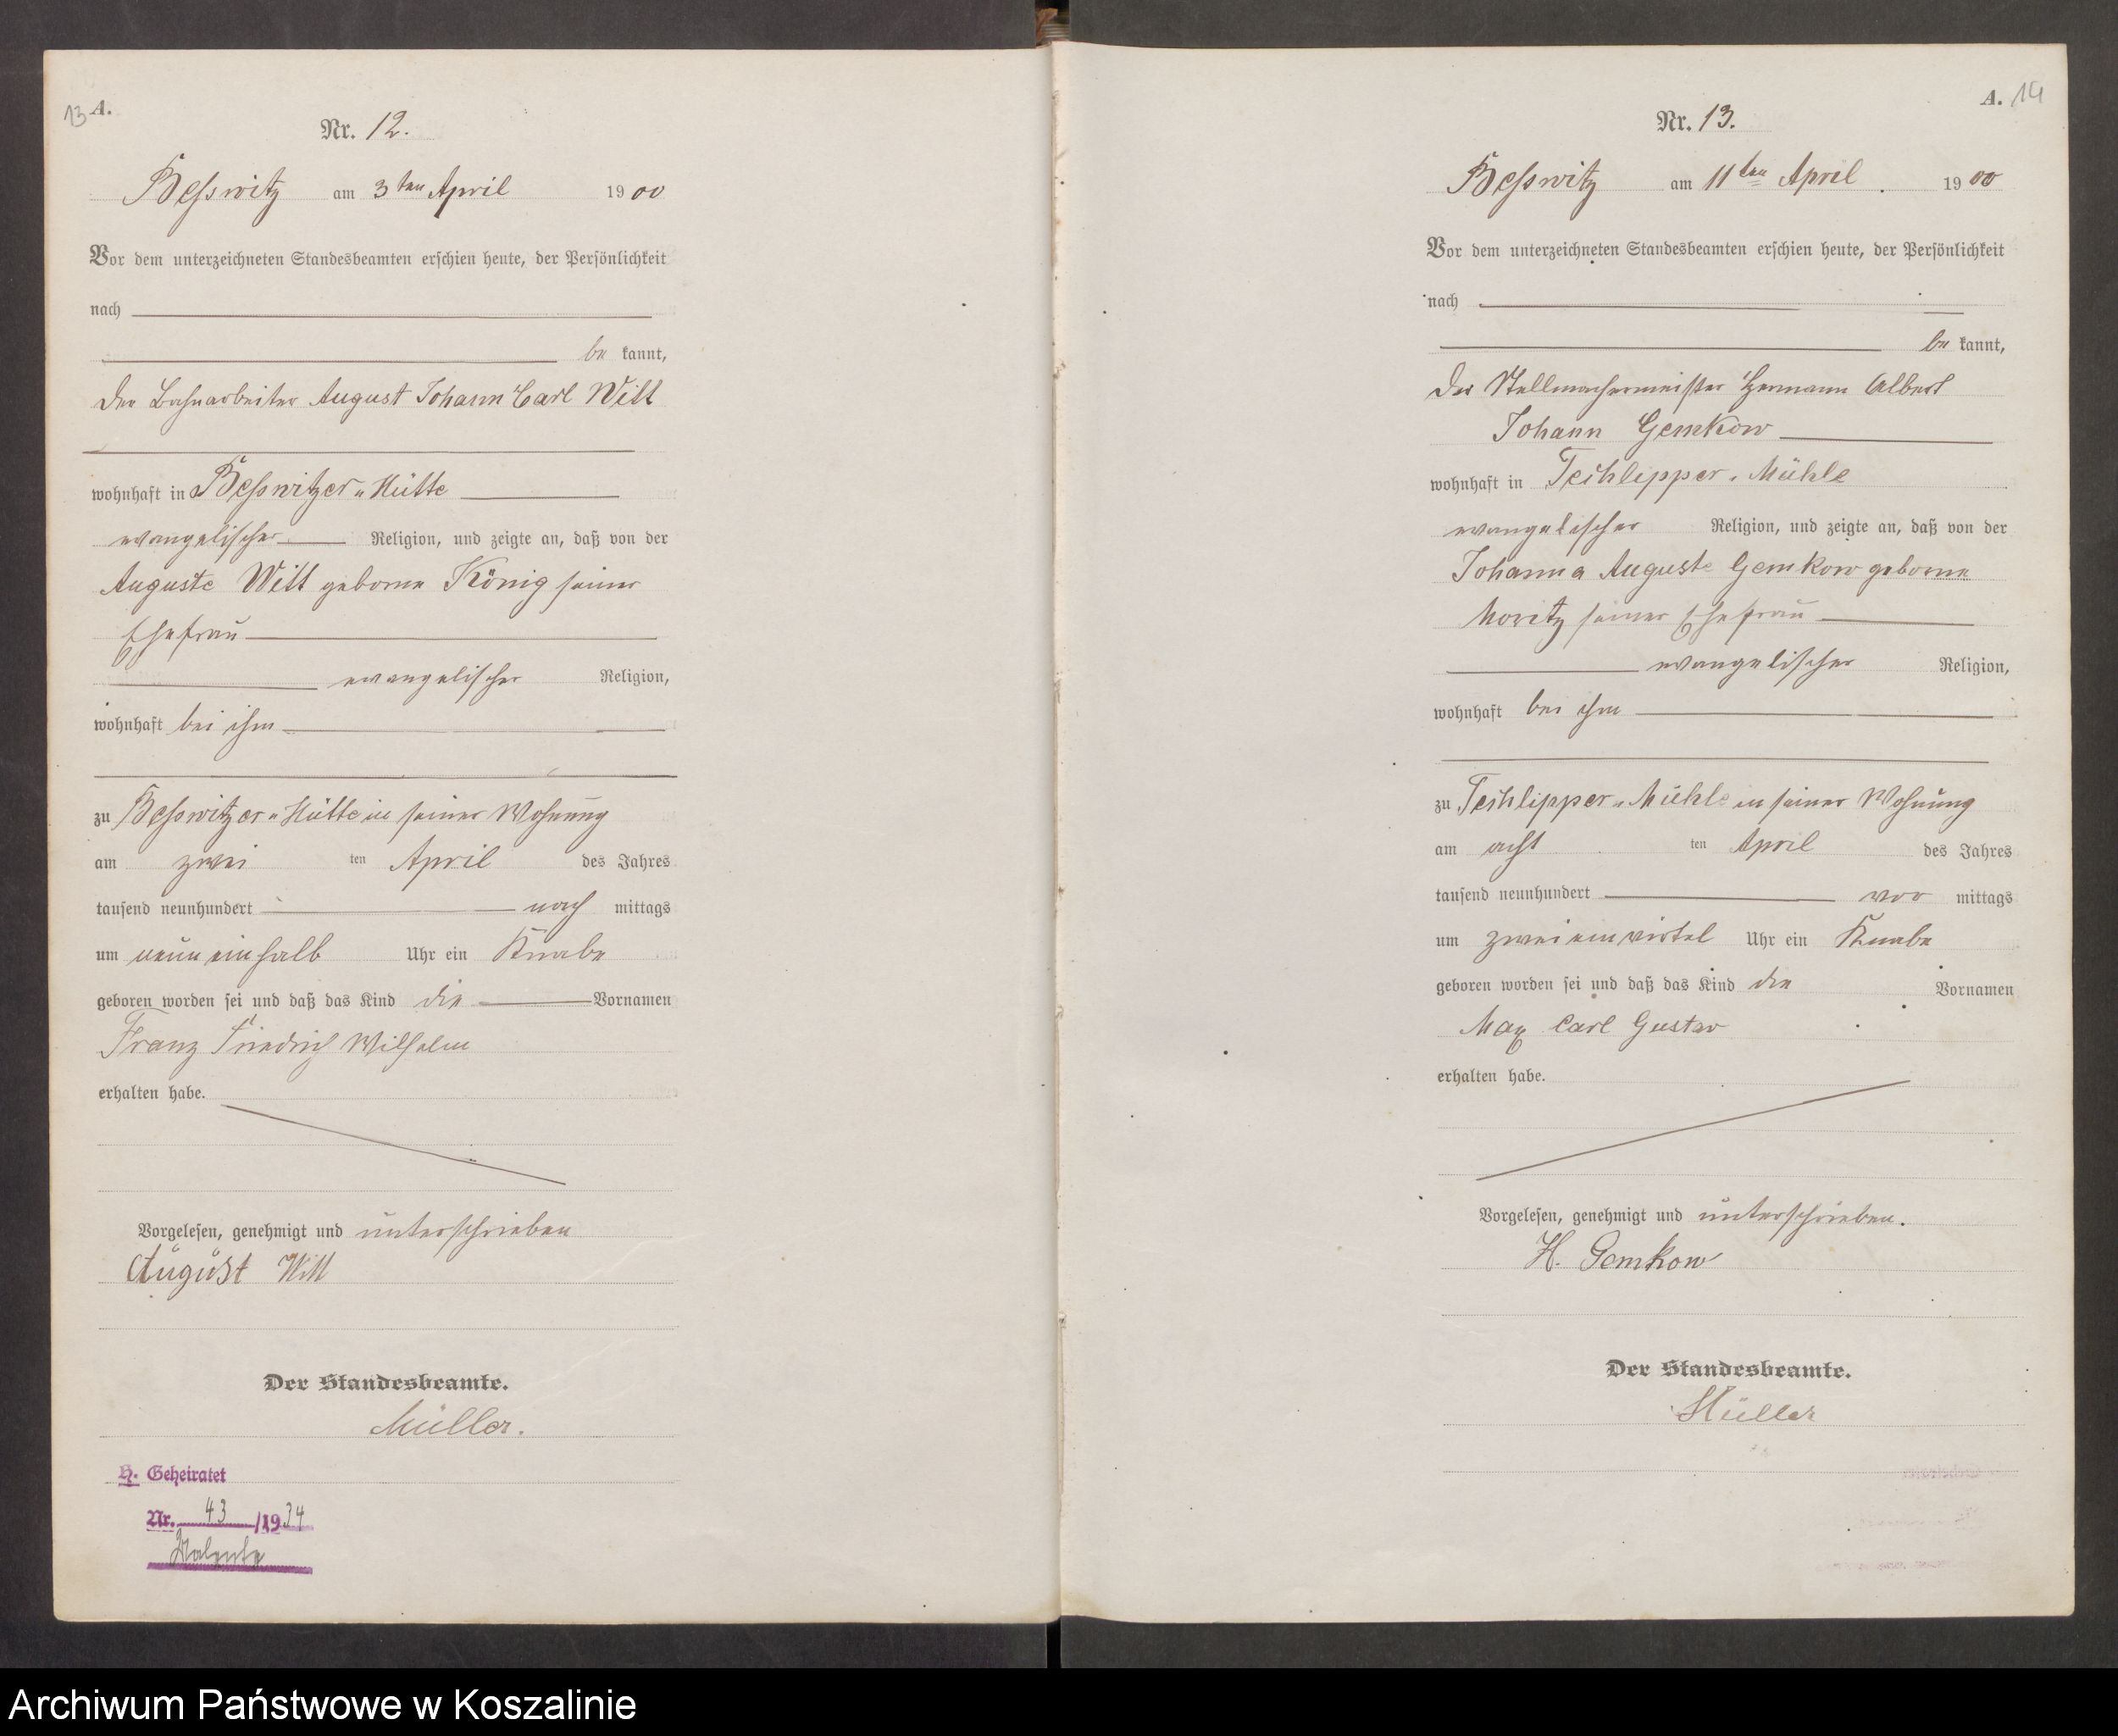 13 A.
Nr. 12.
Beßwitz am 3ten April 1900
Vor dem unterzeichneten Standesbeamten erschien heute, der Persönlichkeit
nach
be kannt,
der Bahnarbeiter August Johann Carl Witt
wohnhaft in Beßwitzer-Hütte
evangelischer Religion, und zeigte an, daß von der
Auguste Witt geborne König seiner
Ehefrau
evangelischer Religion,
wohnhaft bei ihm
zu Beßwitzer-Hütte in seiner Wohnung
am zwei ten April des Jahres
tausend neunhundert nach mittags
um neun einhalb Uhr ein Knabe
geboren worden sei und daß das Kind die Vornamen
Franz Friedrich Wilhelm
erhalten habe.
Vorgelesen, genehmigt und unterschrieben
August Witt
Der Standesbeamte.
Müller.
H. Geheiratet
Nr. 43 /1934
A. 14
Nr. 13.
Beßwitz am 11ten April 1900
Vor dem unterzeichneten Standesbeamten erschien heute, der Persönlichkeit
nach
be kannt,
der Stellmachermeister Hermann Albert
Johann Gemkow
wohnhaft in Techlipper-Mühle
evangelischer Religion, und zeigte an, daß von der
Johanna Auguste Gemkow geborne
Moritz seiner Ehefrau
evangelischer Religion,
wohnhaft bei ihm
zu Techlipper-Mühle in seiner Wohnung
am acht ten April des Jahres
tausend neunhundert vor mittags
um zwei ein viertel Uhr ein Knabe
geboren worden sei und daß das Kind die Vornamen
Max Carl Gustav
erhalten habe.
Vorgelesen, genehmigt und unterschrieben.
H. Gemkow
Der Standesbeamte.
Müller
Archiwum Państwowe w Koszalinie